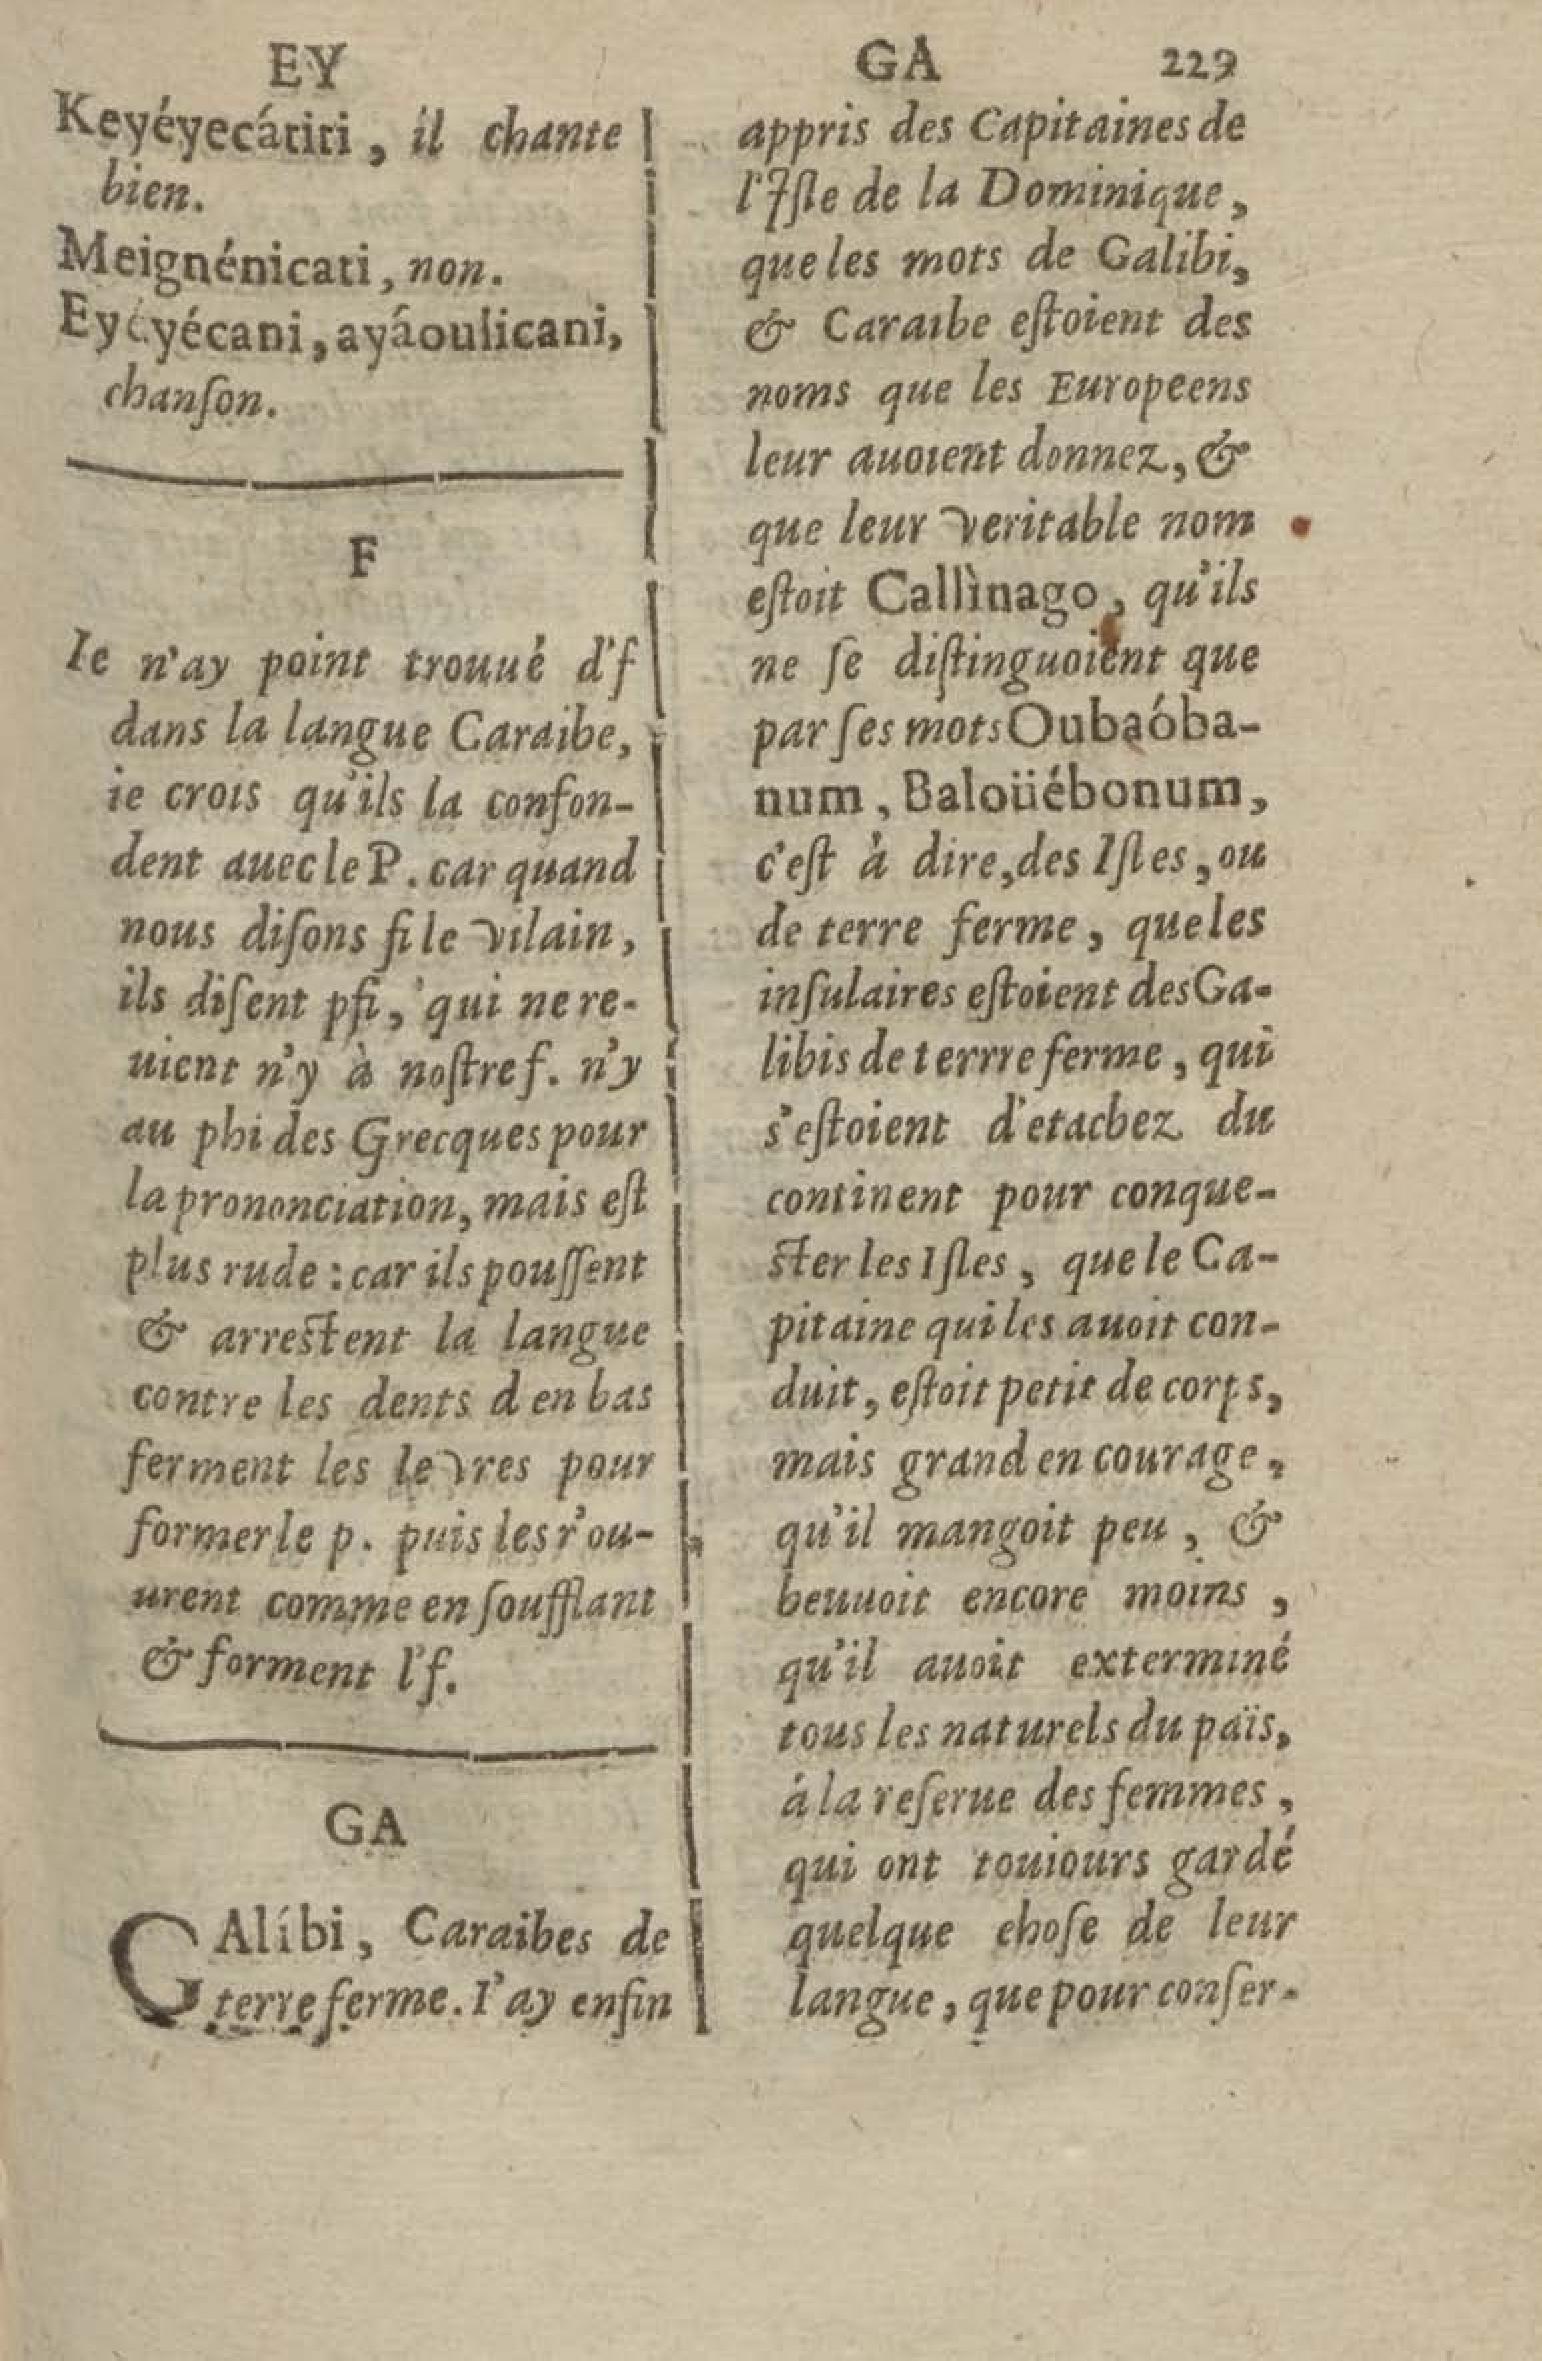 EY
Keyéyecátiti, il chante
bien.
Meignénicati, non.
Eyéyécani, ayáoulicani,
chanſon.
F
Ie n'ay point trouué d'f
dans la langue Caraibe,
ie crois qu'ils la confon-
dent auec le P. car quand
nous diſons fi le vilain,
ils diſent pfi, qui ne re-
uient n'y à noſtre f. n'y
au phi des Grecques pour
la prononciation, mais eſt
plus rude : car ils pouſſent
& arreſtent la langue
contre les dents d en bas
ferment les levres pour
former le p. puis les r'ou-
urent comme en ſoufflant
& forment l'f.
GA
GAlíbi, Caraibes de
terre ferme. I'ay enfin
GA 229
appris des Capitaines de
l'Iſle de la Dominique,
que les mots de Galibi,
& Caraibe eſtoient des
noms que les Europeens
leur auoient donnez, &
que leur veritable nom
eſtoit Callìnago, qu'ils
ne ſe diſtinguoient que
par ſes mots Oubaóba-
num, Baloüébonum,
c'eſt à dire, des Iſles, ou
de terre ferme, que les
inſulaires eſtoient des Ga-
libis de terrre ferme, qui
s'eſtoient d'etachez du
continent pour conque-
ſter les Iſles, que le Ca-
pitaine qui les auoit con-
duit, eſtoit petit de corps,
mais grand en courage,
qu'il mangoit peu, &
beuuoit encore moins,
qu'il auoit exterminé
tous les naturels du païs,
á la reſerue des femmes,
qui ont touiours gardé
quelque choſe de leur
langue, que pour conſer-